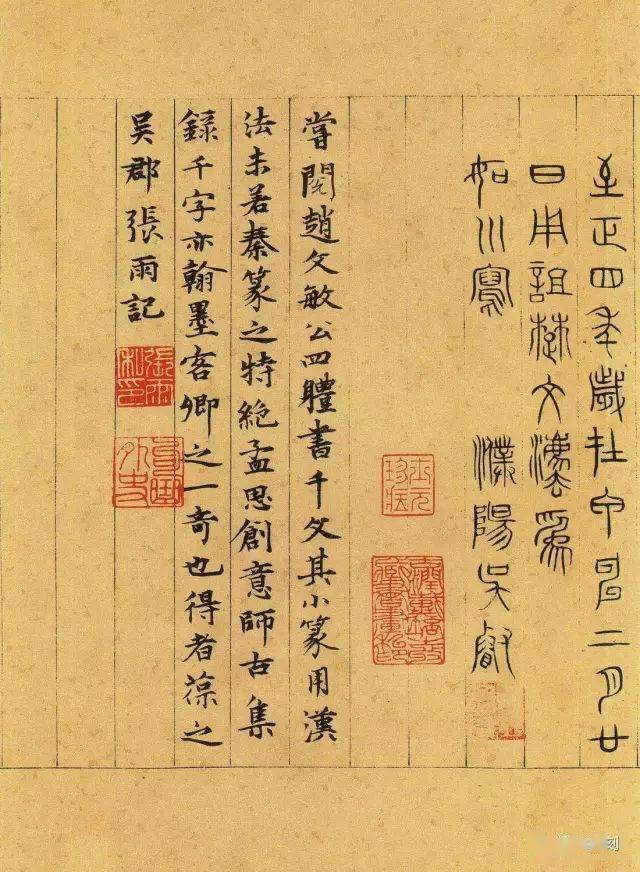 至正四年歲在甲申二月廿
日用詛楚文灋為
如川寫 濮陽吳叡
嘗閱趙文敏公四體書千文其小篆用漢
法未若秦篆之特絕孟思創意師古集
錄千字亦翰墨客卿之一奇也得者葆之
吳郡張雨記
張雨私印
句曲外史
刻